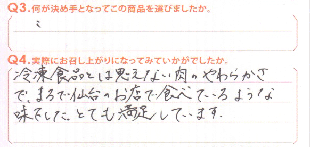 Q3.何が決め手となってこの商品を選びましたか。
Q4.実際にお召し上がりになってみていかがでしたか。
冷凍食品とは思えない肉のやわらかさ
で、まるで仙台のお店で食べているような
味でした。とても満足しています。